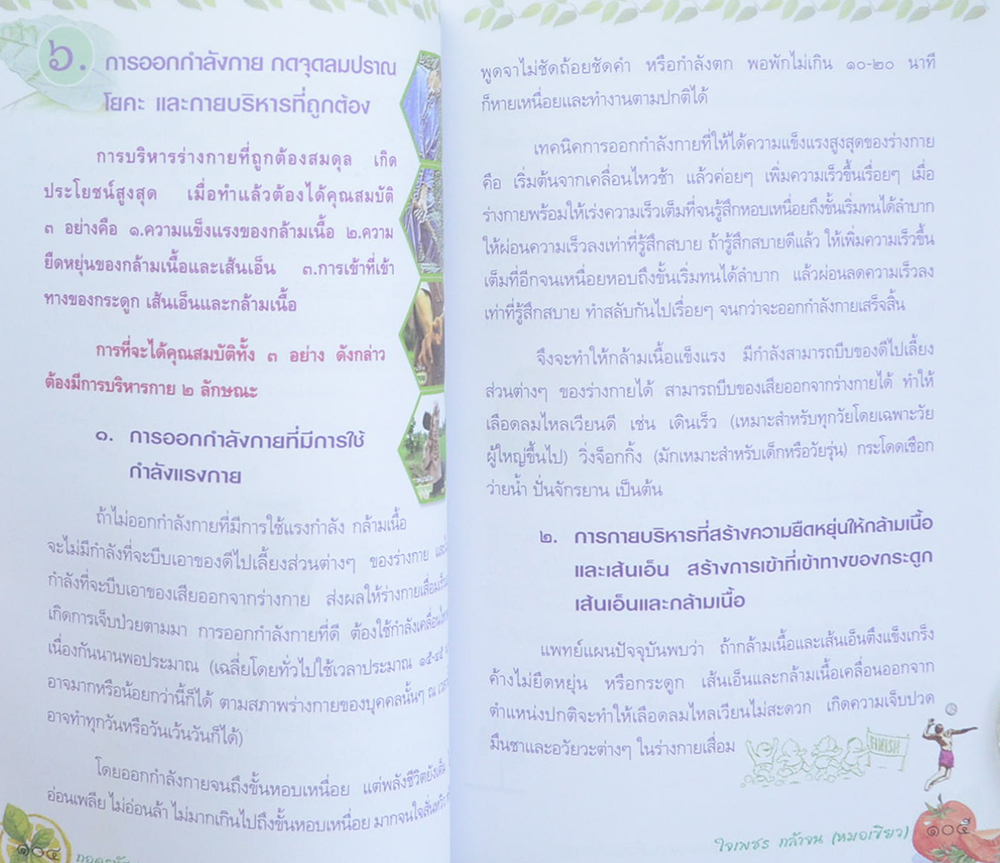 ๖. การออกกำลังกาย กดจุดลมปราณ
โยคะ และกายบริหารที่ถูกต้อง
การบริหารร่างกายที่ถูกต้องสมดุล เกิด
ประโยชน์สูงสุด เมื่อทำแล้วต้องได้คุณสมบัติ
๓ อย่างคือ ๑.ความแข็งแรงของกล้ามเนื้อ ๒.ความ
ยืดหยุ่นของกล้ามเนื้อและเส้นเอ็น ๓.การเข้าที่เข้า
ทางของกระดูก เส้นเอ็นและกล้ามเนื้อ
การที่จะได้คุณสมบัติทั้ง ๓ อย่าง ดังกล่าว
ต้องมีการบริหารกาย ๒ ลักษณะ
๑. การออกกำลังกายที่มีการใช้
กำลังแรงกาย
ถ้าไม่ออกกำลังกายที่มีการใช้แรงกำลัง กล้ามเนื้อ
จะไม่มีกำลังที่จะบีบเอาของดีไปเลี้ยงส่วนต่างๆ ของร่างกาย
กำลังที่จะบีบเอาของเสียออกจากร่างกาย ส่งผลให้ร่างกายเสื่อม
เกิดการเจ็บป่วยตามมา การออกกำลังกายที่ดี ต้องใช้กำลัง
เนื่องกันนานพอประมาณ (เฉลี่ยโดยทั่วไปใช้เวลาประมาณ ๑๕-๔๕
อาจมากหรือน้อยกว่านี้ก็ได้ ตามสภาพร่างกายของบุคคลนั้นๆ ณ
อาจทำทุกวันหรือวันเว้นวันก็ได้)
โดยออกกำลังกายจนถึงขั้นหอบเหนื่อย แต่พลังชีวิตยังเต็ม
อ่อนเพลีย ไม่อ่อนล้า ไม่มากเกินไปถึงขั้นหอบเหนื่อย มากจนใจสั่น
๑๐๔
พูดจาไม่ชัดถ้อยชัดคำ หรือกำลังตก พอพักไม่เกิน ๑๐-๒๐ นาที
ก็หายเหนื่อยและทำงานตามปกติได้
เทคนิคการออกกำลังกายที่ให้ได้ความแข็งแรงสูงสุดของร่างกาย
คือ เริ่มต้นจากเคลื่อนไหวช้า แล้วค่อยๆ เพิ่มความเร็วขึ้นเรื่อยๆ เมื่อ
ร่างกายพร้อมให้เร่งความเร็วเต็มที่จนรู้สึกหอบเหนื่อยถึงขั้นเริ่มทนได้ลำบาก
ให้ผ่อนความเร็วลงเท่าที่รู้สึกสบาย ถ้ารู้สึกสบายดีแล้ว ให้เพิ่มความเร็วขึ้น
เต็มที่อีกจนเหนื่อยหอบถึงขั้นเริ่มทนได้ลำบาก แล้วผ่อนลดความเร็วลง
เท่าที่รู้สึกสบาย ทำสลับกันไปเรื่อยๆ จนกว่าจะออกกำลังกายเสร็จสิ้น
จึงจะทำให้กล้ามเนื้อแข็งแรง มีกำลังสามารถบีบของดีไปเลี้ยง
ส่วนต่างๆ ของร่างกายได้ สามารถบีบของเสียออกจากร่างกายได้ ทำให้
เลือดลมไหลเวียนดี เช่น เดินเร็ว (เหมาะสำหรับทุกวัยโดยเฉพาะวัย
ผู้ใหญ่ขึ้นไป) วิ่งจ็อกกิ้ง (มักเหมาะสำหรับเด็กหรือวัยรุ่น) กระโดดเชือก
ว่ายน้ำ ปั่นจักรยาน เป็นต้น
๒. การกายบริหารที่สร้างความยืดหยุ่นให้กล้ามเนื้อ
และเส้นเอ็น สร้างการเข้าที่เข้าทางของกระดูก
เส้นเอ็นและกล้ามเนื้อ
แพทย์แผนปัจจุบันพบว่า ถ้ากล้ามเนื้อและเส้นเอ็นตึงแข็งเกร็ง
ค้างไม่ยืดหยุ่น หรือกระดูก เส้นเอ็นและกล้ามเนื้อเคลื่อนออกจาก
ตำแหน่งปกติจะทำให้เลือดลมไหลเวียนไม่สะดวก เกิดความเจ็บปวด
มึนชาและอวัยวะต่างๆ ในร่างกายเสื่อม
FINISH
ใจเพชร กล้าจน (หมอเขียว) ๑๐๕